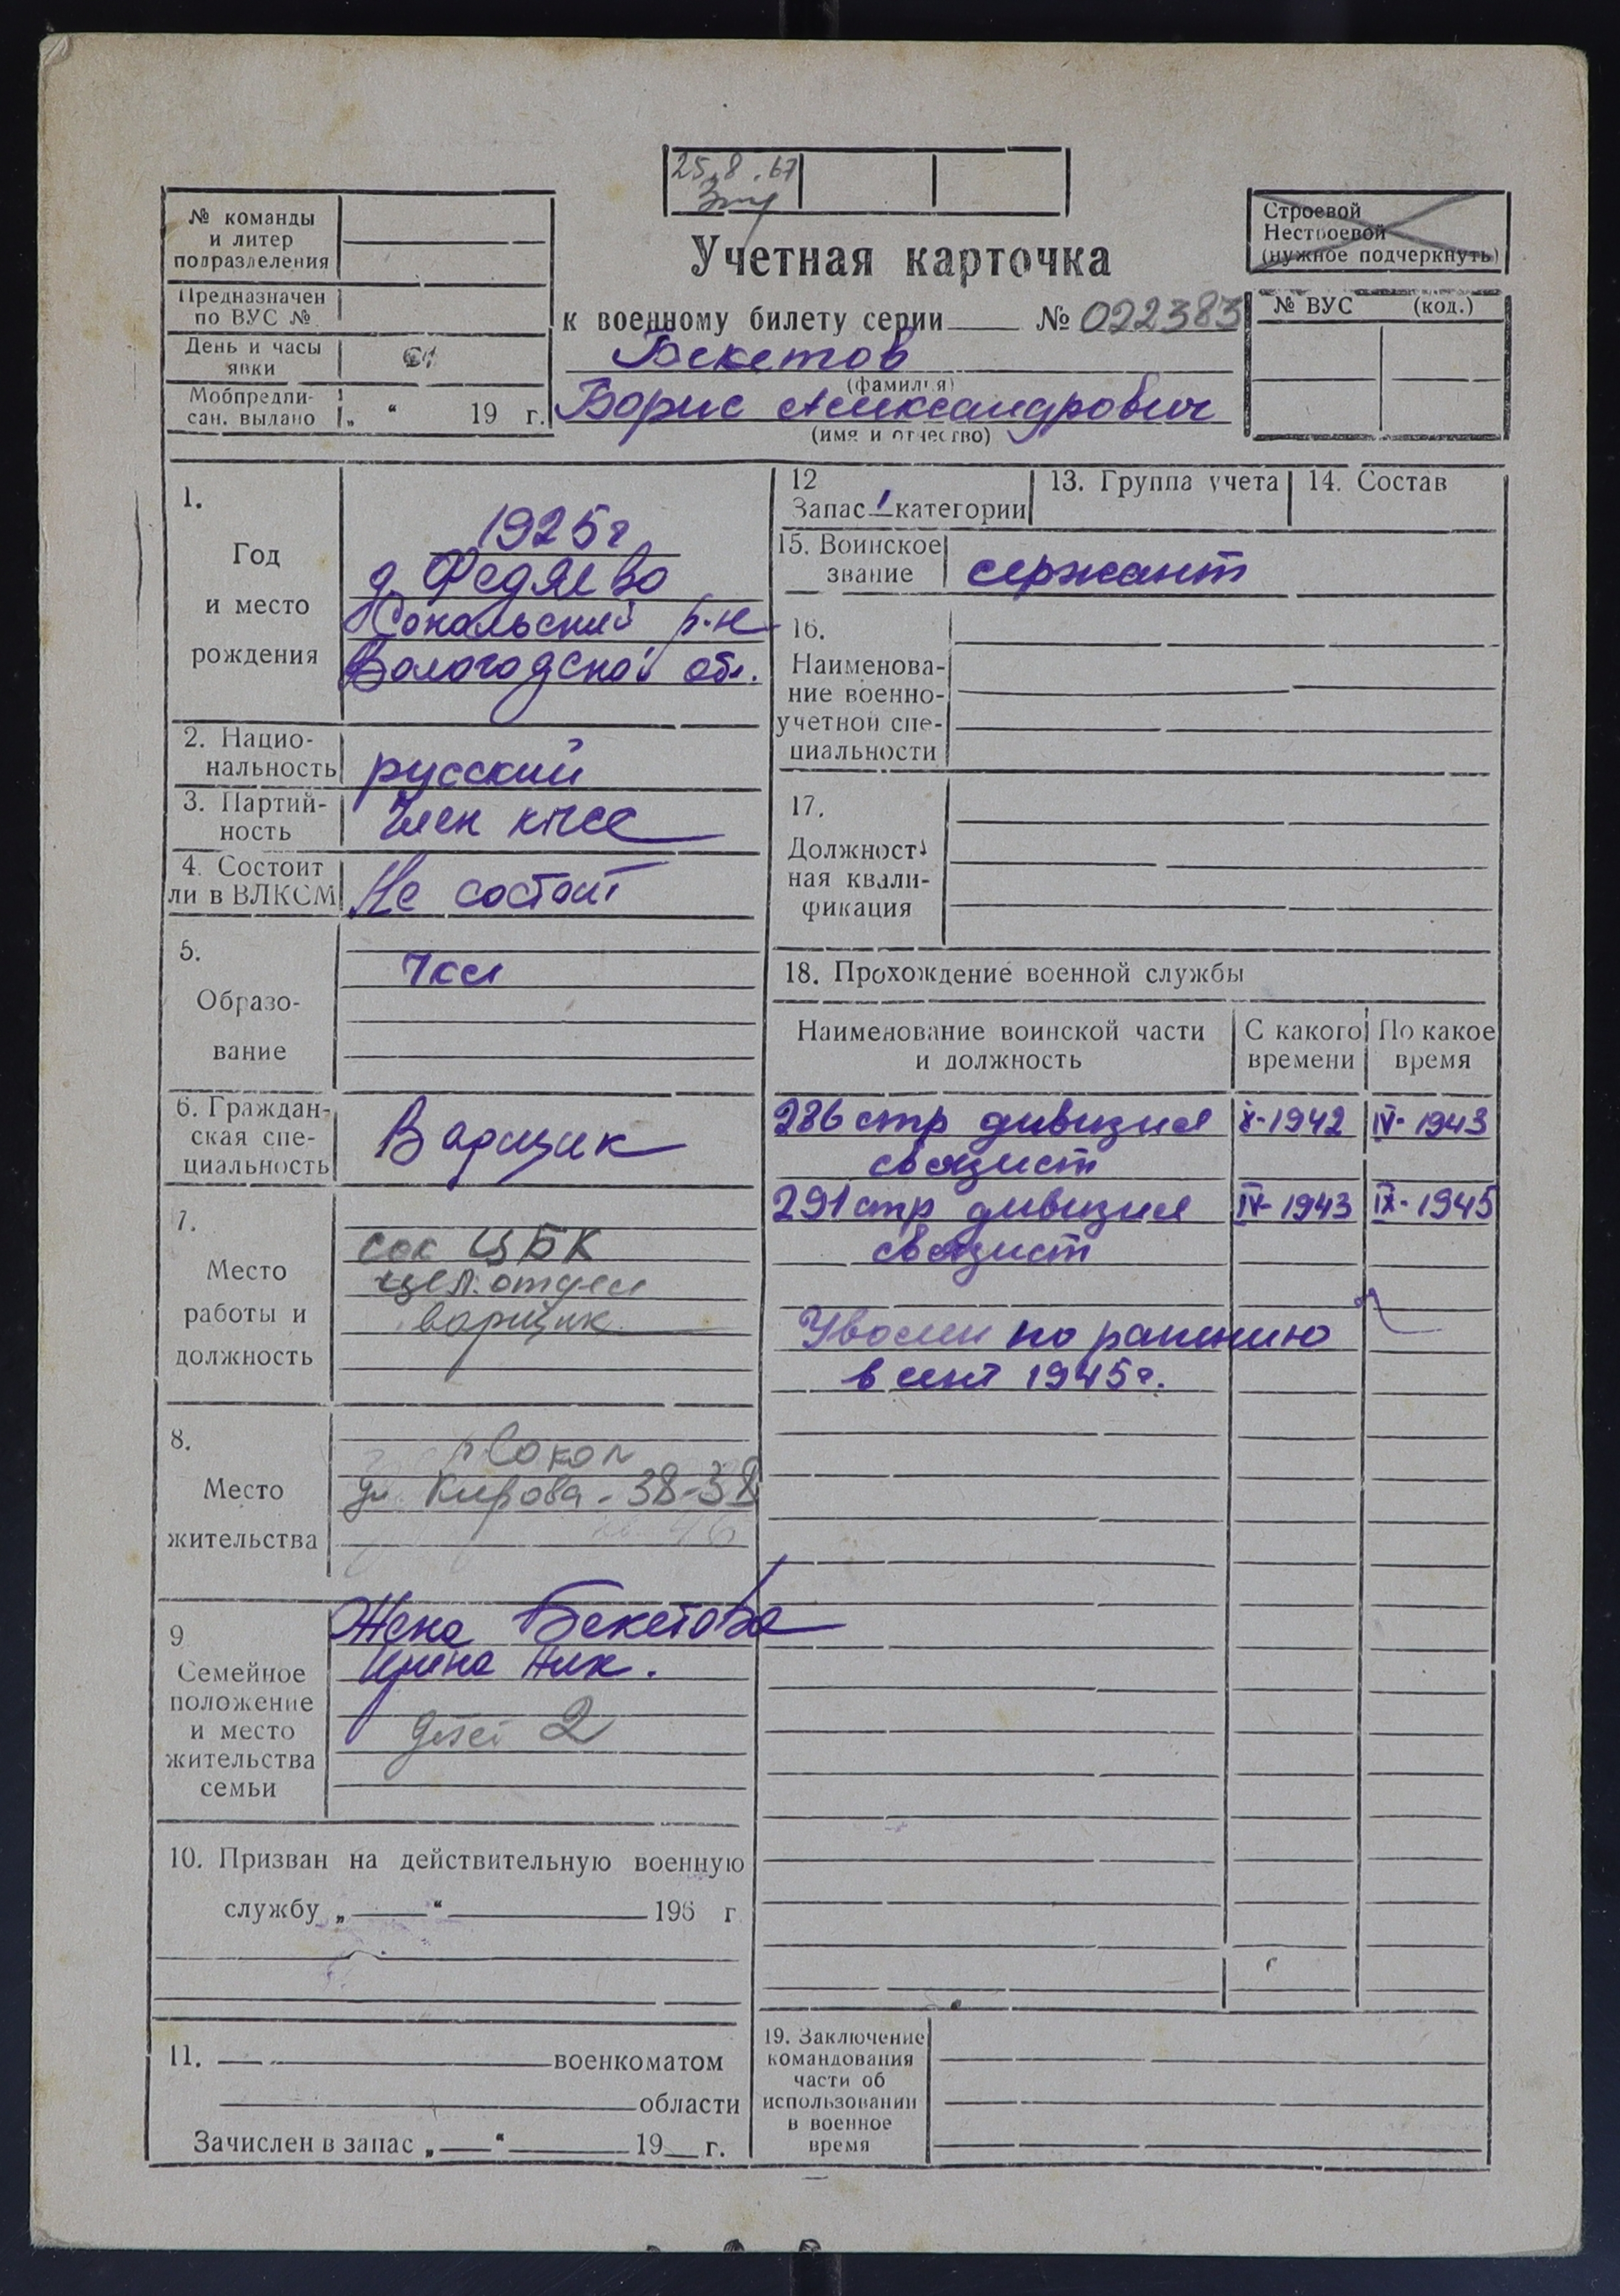 25.8.67
№ команды
и литер
подразделения
Предназначен
по ВУС №
День и часы
явки
Мобпредпи-
сан. выдано „ “ 19 г.
Учетная карточка
к военному билету серии № 022383
Бекетов
(фамилия)
Борис Александрович
(имя и отчество)
Строевой
Нестроевой
(нужное подчеркнуть)
№ ВУС (код.)
1.
Год
и место
рождения
1925г
д. Федяево
Сокольский р-н
Вологодской обл.
2. Нацио-
нальность
русский
3. Партий-
ность
Член кпсс
4. Состоит
ли в ВЛКСМ
Не состоит
5.
Образо-
вание
7кл
6. Граждан-
ская спе-
циальность
Варщик
7.
Место
работы и
должность
сок ЦБК
цел. отдел
варщик
8.
Место
жительства
г Сокол
ул Кирова-38-38
9
Семейное
положение
и место
жительства
семьи
Жена Бекетова
Ирина Ник.
детей 2
10. Призван на действительную военную
службу „ “ 196 г
11. военкоматом
области
Зачислен в запас „ “ 19 г.
12
Запас 1 категории
13. Группа учета
14. Состав
15. Воинское
звание
сержант
16.
Наименова-
ние военно-
учетной спе-
циальности
17.
Должност-
ная квали-
фикация
18. Прохождение военной службы
Наименование воинской части
и должность
С какого
времени
По какое
время
286 стр дивизия X-1942 IV-1943
связист
291 стр дивизия IV-1943 IX-1945
связист
Уволен по ранению
в сент 1945г.
19. Заключение
командования
части об
использовании
в военное
время